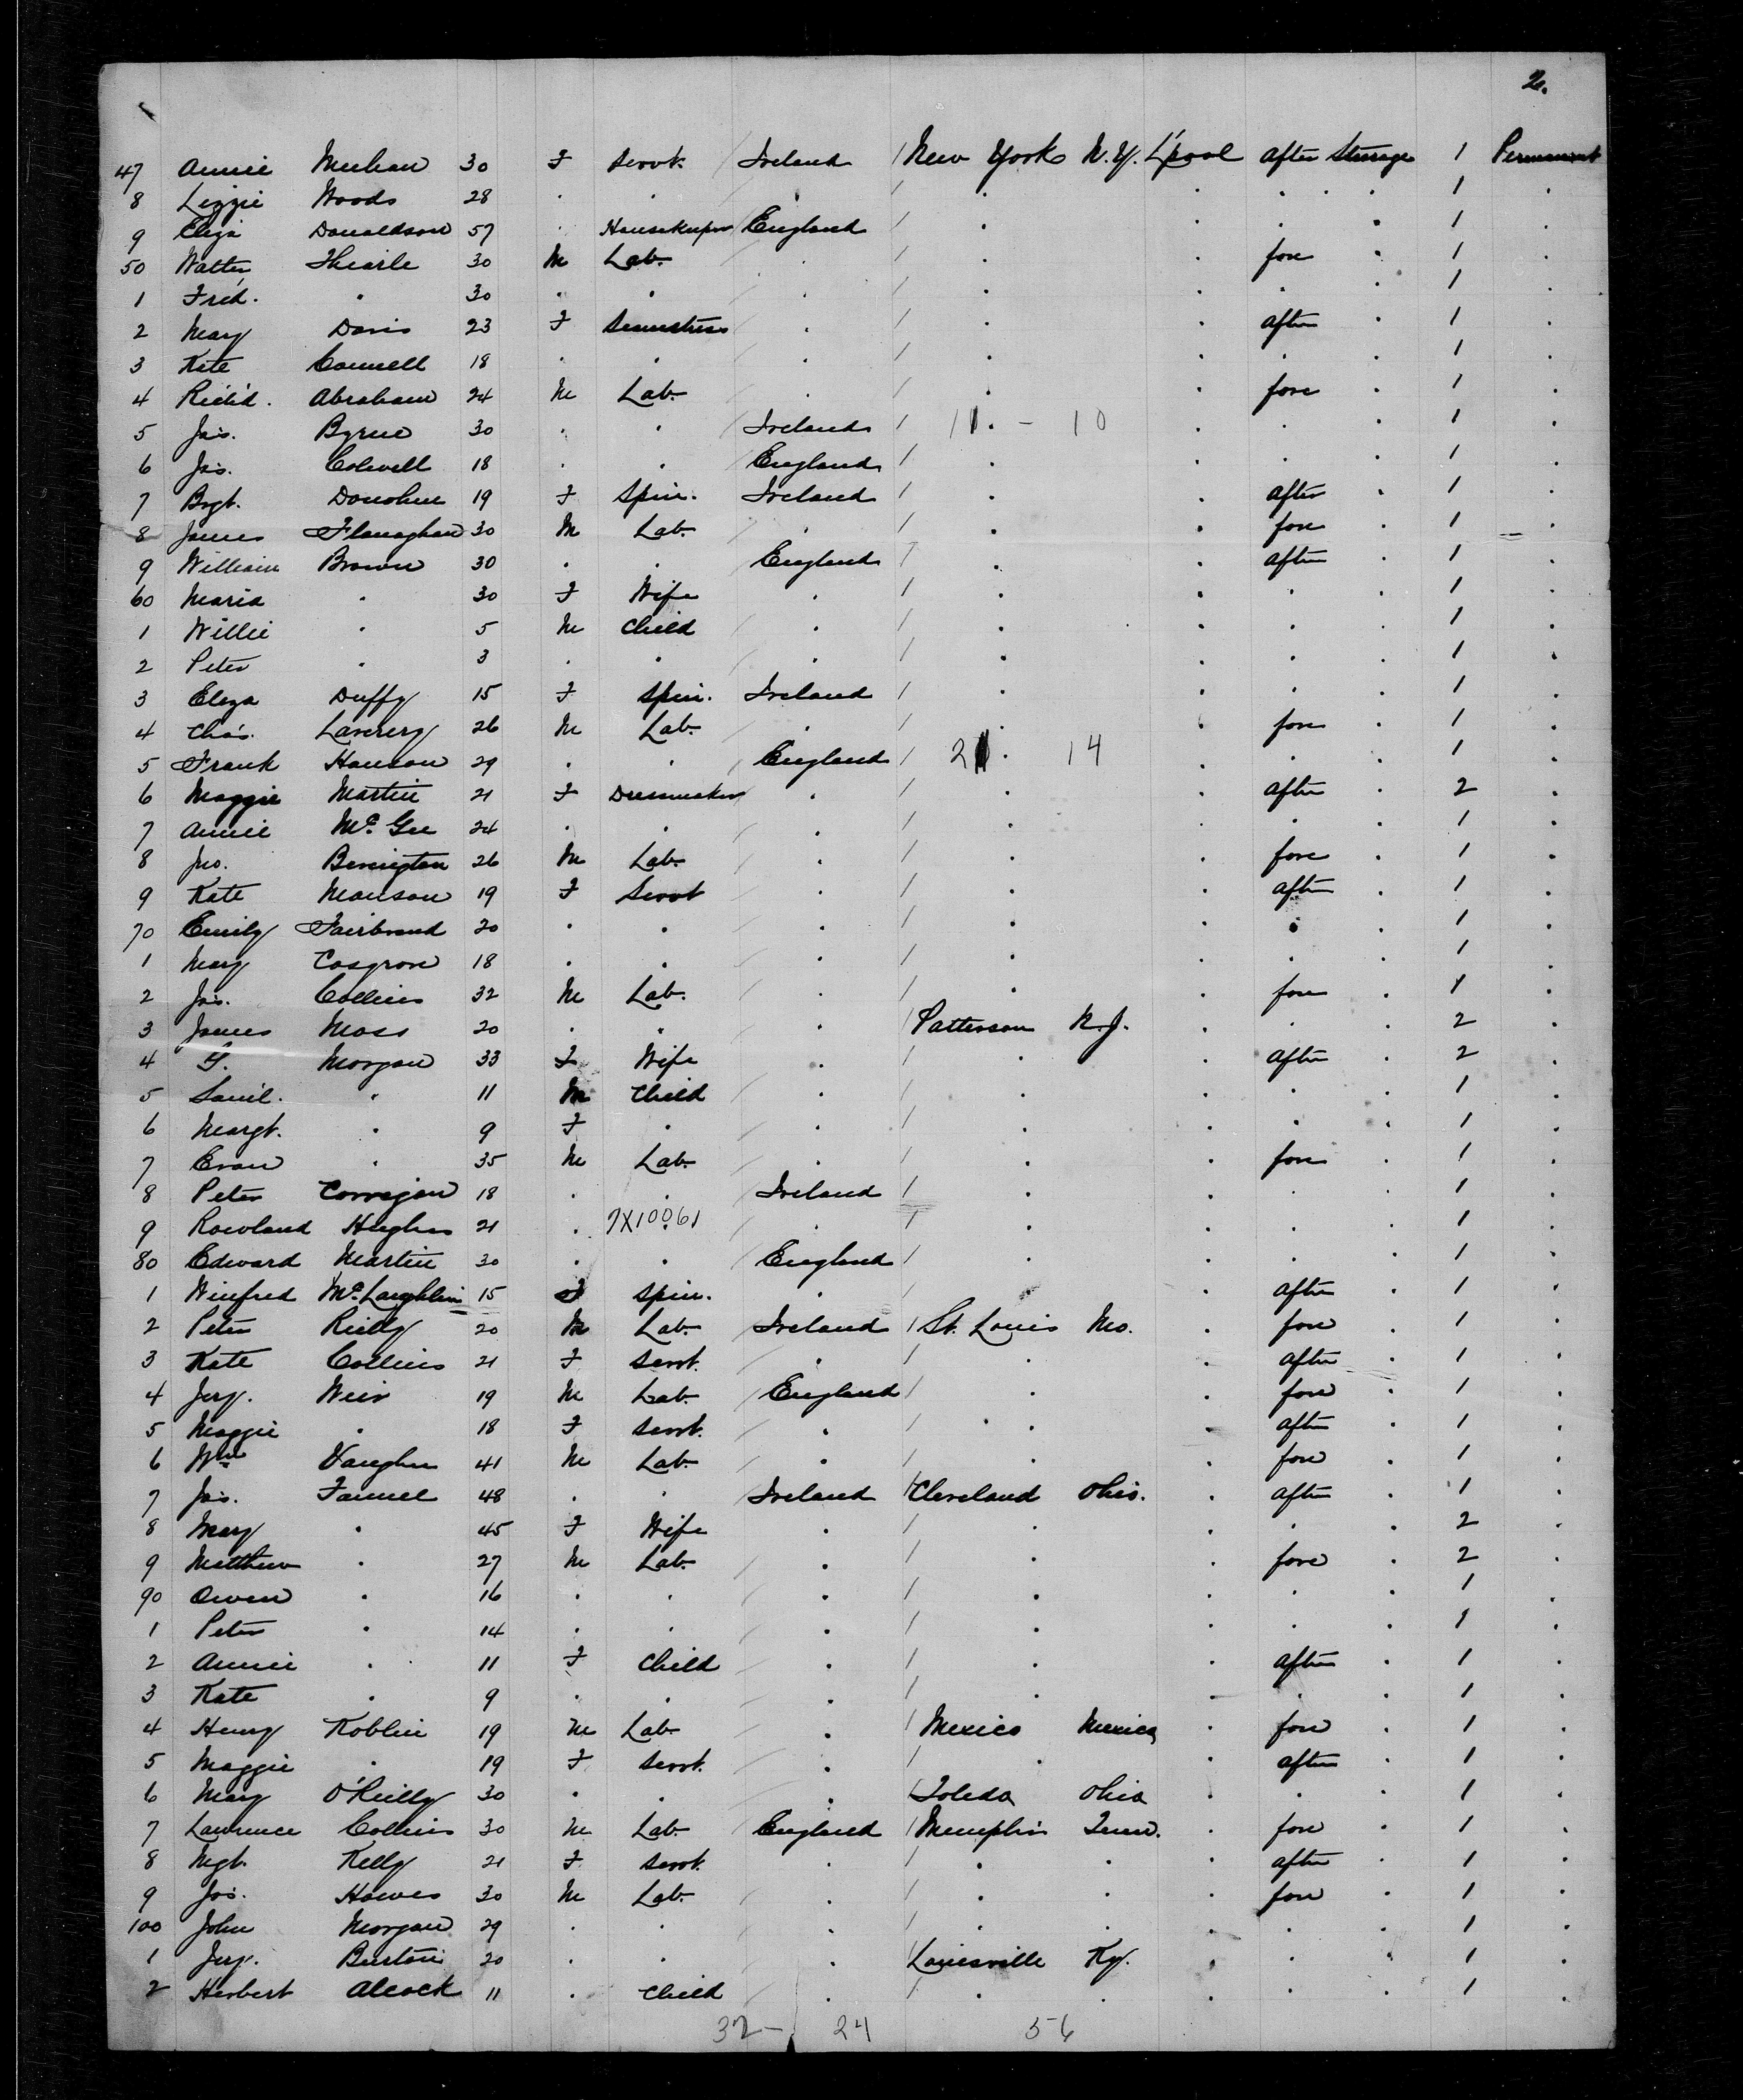 2.
47 Annie Meehan 30 F Servt. Ireland / New York N.Y. L'pool After Steerage 1 Permanent
8 Lizzie Woods 28 . . . / . . . . . 1 .
9 Eliza Donaldson 57 . Housekeeper England / . . . . 1 .
50 Walter Thearle 30 M Lab. . / . . fore . 1 .
1 Fred. . 30 . . . / . . . . 1 .
2 Mary Davis 23 F Seamstress . / . . after . 1 .
3 Kate Connell 18 . . . / . . . . 1 .
4 Rich'd. Abraham 24 M Lab. . / . . fore . 1 .
5 Jas. Byrne 30 . . Ireland / 11 . - 10 . . . 1 .
6 Jas. Colwell 18 . . England / . . . . 1 .
7 Brgt. Donohue 19 F Spin. Ireland / . . after . 1 .
8 James Flanaghan 30 M Lab. . / . . fore . 1 .
9 William Brown 30 . . England / . . after . 1 .
60 Maria . 30 F Wife . / . . . . 1 .
1 Willie . 5 M Child . / . . . . 1 .
2 Peter . 3 . . . / . . . . 1 .
3 Eliza Duffy 15 F Spin. Ireland / . . . . 1 .
4 Chas. Laverery 26 M Lab. . / . . fore . 1 .
5 Frank Hanson 29 . . England / 21 . 14 . . . 1 .
6 Maggie Martin 21 F Dressmaker . / . . after . 2 .
7 Annie McGee 24 . . . / . . . . 1 .
8 Jno. Benington 26 M Lab. . / . . fore . 1 .
9 Kate Manson 19 F Servt . / . . after . 1 .
70 Emily Fairbrand 20 . . . / . . . . 1 .
1 Mary Cosgrove 18 . . . / . . . . 1 .
2 Jas. Collins 32 M Lab. . / . . fore . 1 .
3 James Moss 20 . . . / Patterson N.J. . . . 2 .
4 Morgan 33 F Wife . / . . after . 2 .
5 Sam'l. . 11 M Child . / . . . . 1 .
6 Margt. . 9 F . . / . . . . 1 .
7 Evan . 35 M Lab. . / . . fore . 1 .
8 Peter Corrigan 18 . . Ireland / . . . . 1 .
9 Rowland Hughes 21 . 7X10061 . / . . . . 1 .
80 Edward Martin 30 . . England / . . . . 1 .
1 Winfred McLaughlin 15 F Spin. . / . . after . 1 .
2 Peter Reilly 20 M Lab. Ireland / St. Louis Mo. . fore . 1 .
3 Kate Collins 21 F Servt. . / . . after . 1 .
4 Jerj. Weir 19 M Lab. England / . . fore . 1 .
5 Maggie . 18 F Servt. . / . . . after . 1 .
6 Wm Vaughn 41 M Lab. . / . . fore . 1 .
7 Jas. Fannel 48 . . Ireland / Cleveland Ohio. . after . 1 .
8 Mary . 45 F Wife . / . . . . 2 .
9 Matthew . 27 M Lab. . / . . fore . 2 .
90 Owen . 16 . . . / . . . . 1 .
1 Peter . 14 . . . / . . . . 1 .
2 Annie . 11 F Child . / . . after . 1 .
3 Kate . 9 . . . / . . . . 1 .
4 Henry Koblin 19 M Lab. . / Mexico Mexico . fore . 1 .
5 Maggie . 19 F Servt. . / . . after . 1 .
6 Mary O'Reilly 30 . . . / Toledo Ohio . . . 1 .
7 Lawrence Collins 30 M Lab. England / Memphis Tenn. . fore . 1 .
8 Mgt. Kelly 21 F Servt. . / . . . after . 1 .
9 Jas. Howes 30 M Lab. . / . . . fore . 1 .
100 John Morgan 29 . . . / . . . . . 1 .
1 Jerj. Burton 20 . . . / Louisville Ky. . . . 1 .
2 Herbert Alcock 11 . Child . / . . . . . 1 .
32 - 24 56